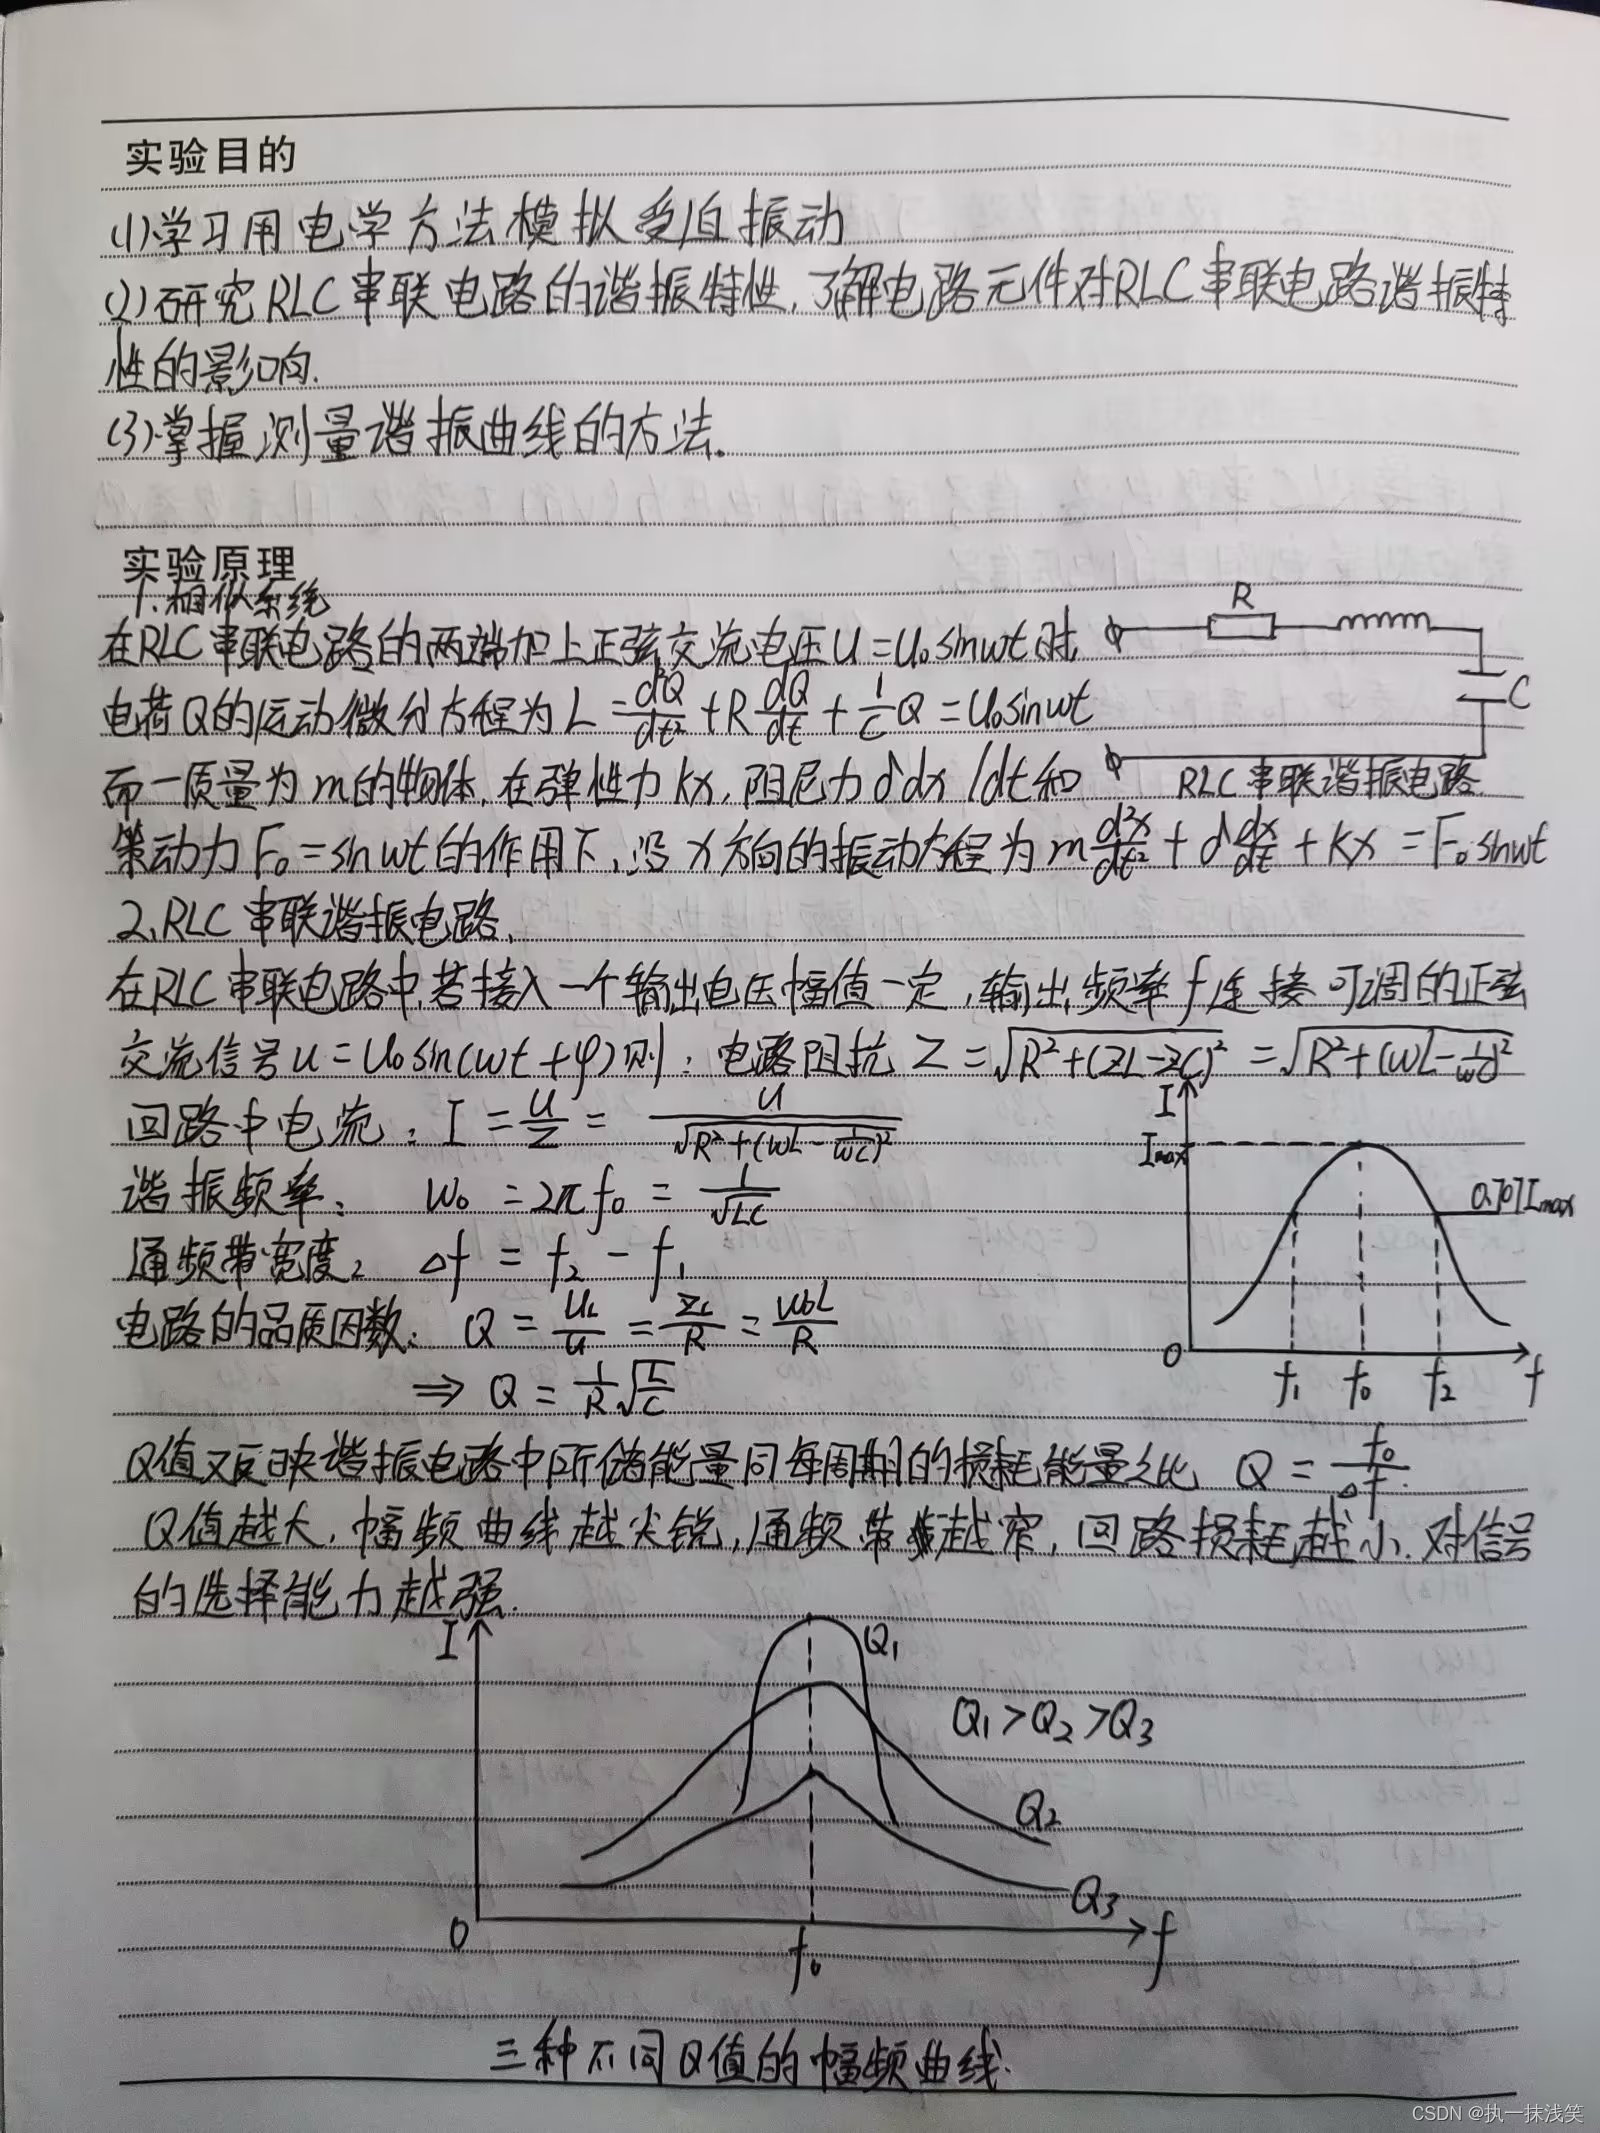 实验目的
(1)学习用电学方法模拟受迫振动
(2)研究RLC串联电路的谐振特性,了解电路元件对RLC串联电路谐振特
性的影响.
(3)掌握测量谐振曲线的方法.
实验原理
1.相似系统
在RLC串联电路的两端加上正弦交流电压U=U₀sinwt时,
电荷Q的运动微分方程为 L=d²Q/dt²+R dQ/dt+1/C Q=U₀sinwt
R
C
RLC串联谐振电路.
而一质量为m的物体.在弹性力kx,阻尼力δdx/dt和
策动力F₀=sinwt的作用下,沿x方向的振动方程为m d²x/dt²+δ dx/dt+kx=F₀sinwt
2.RLC串联谐振电路.
在RLC串联电路中,若接入一个输出电压幅值一定,输出频率f连接可调的正弦
交流信号u=U₀sin(wt+φ)则:电路阻抗Z=√(R²+(ZL-ZC)²)=√(R²+(wL-1/wC)²)
回路中电流: I=U/Z=U/√(R²+(wL-1/wC)²)
谐振频率: w₀=2πf₀=1/√LC
通频带宽度: △f=f₂-f₁
电路的品质因数: Q=U_L/U=Z_L/R=w₀L/R
⇒Q=1/R √(L/C)
I
Imax
0.707Imax
0 f₁ f₀ f₂ f
Q值又反映谐振电路中所储能量同每周期的损耗能量之比 Q=f₀/△f
Q值越大,幅频曲线越尖锐,通频带越窄,回路损耗越小.对信号
的选择能力越强.
I
Q₁
Q₁>Q₂>Q₃
Q₂
Q₃
0 f₀ f
三种不同Q值的幅频曲线.
CSDN @执一抹浅笑